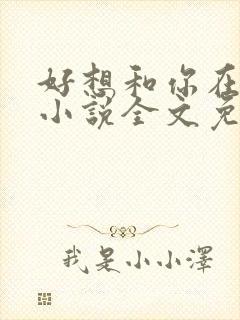 好想和你在
小说全文免
我是小小泽